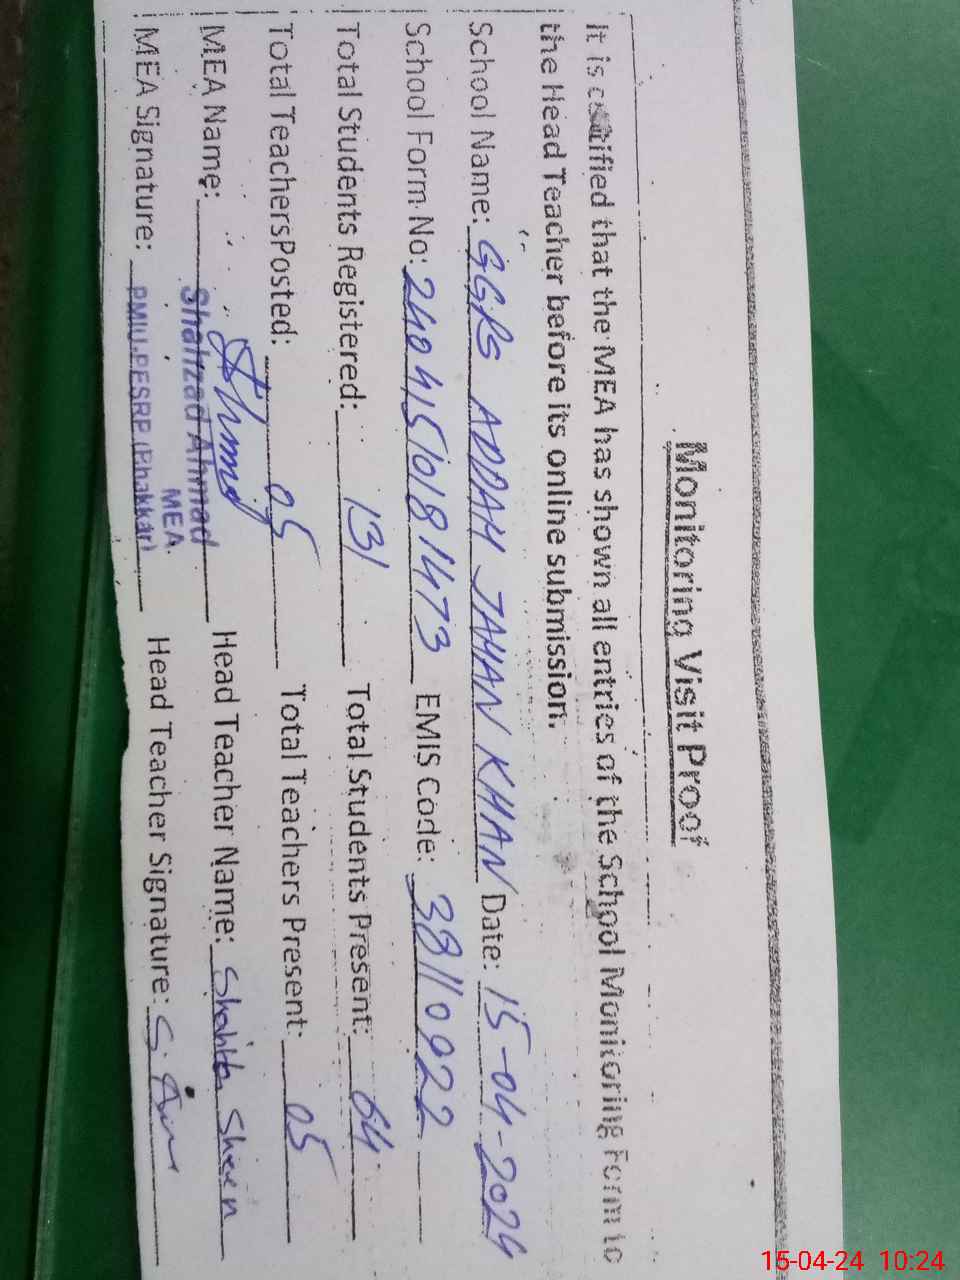 Monitoring Visit Proof
It is certified that the MEA has shown all entries of the School Monitoring Form to
the Head Teacher before its online submission.
School Name: GGPS ADDAH JAHAN KHAN Date: 15-04-2024
School Form No: 24041510181473 EMIS Code: 38110922
Total Students Registered: 131 Total Students Present: 64
Total TeachersPosted: 05 Total Teachers Present: 05
MEA Name: Shahzad Ahmad Head Teacher Name: Shahida Sheen
MEA
MEA Signature: PMIU-PESRP (Bhakkar) Head Teacher Signature:
15-04-24 10:24